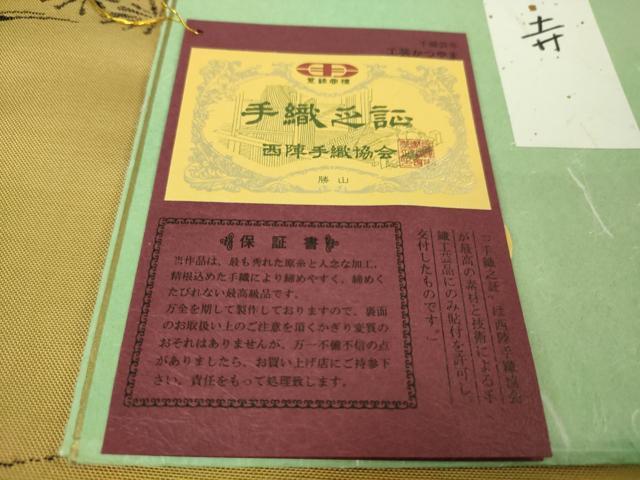 手織芸術
工芸かつやま
登録商標
手織之証
西陣手織協会
勝山
保証書
当作品は、最も秀れた原糸と入念な加工、
精根込めた手織により締めやすく、締めく
たびれない最高級品です。
万全を期して製作しておりますので、裏面
のお取扱い上のご注意を頂くかぎり変質の
おそれはありませんが、万一不備不信の点
がありましたら、お買い上げ店にご持参下
さい。責任をもって処理致します。
「"手織之証"は西陣手織協会
が最高の素材と技術による手
織工芸品にのみ貼付を許可し、
交付したものです。」